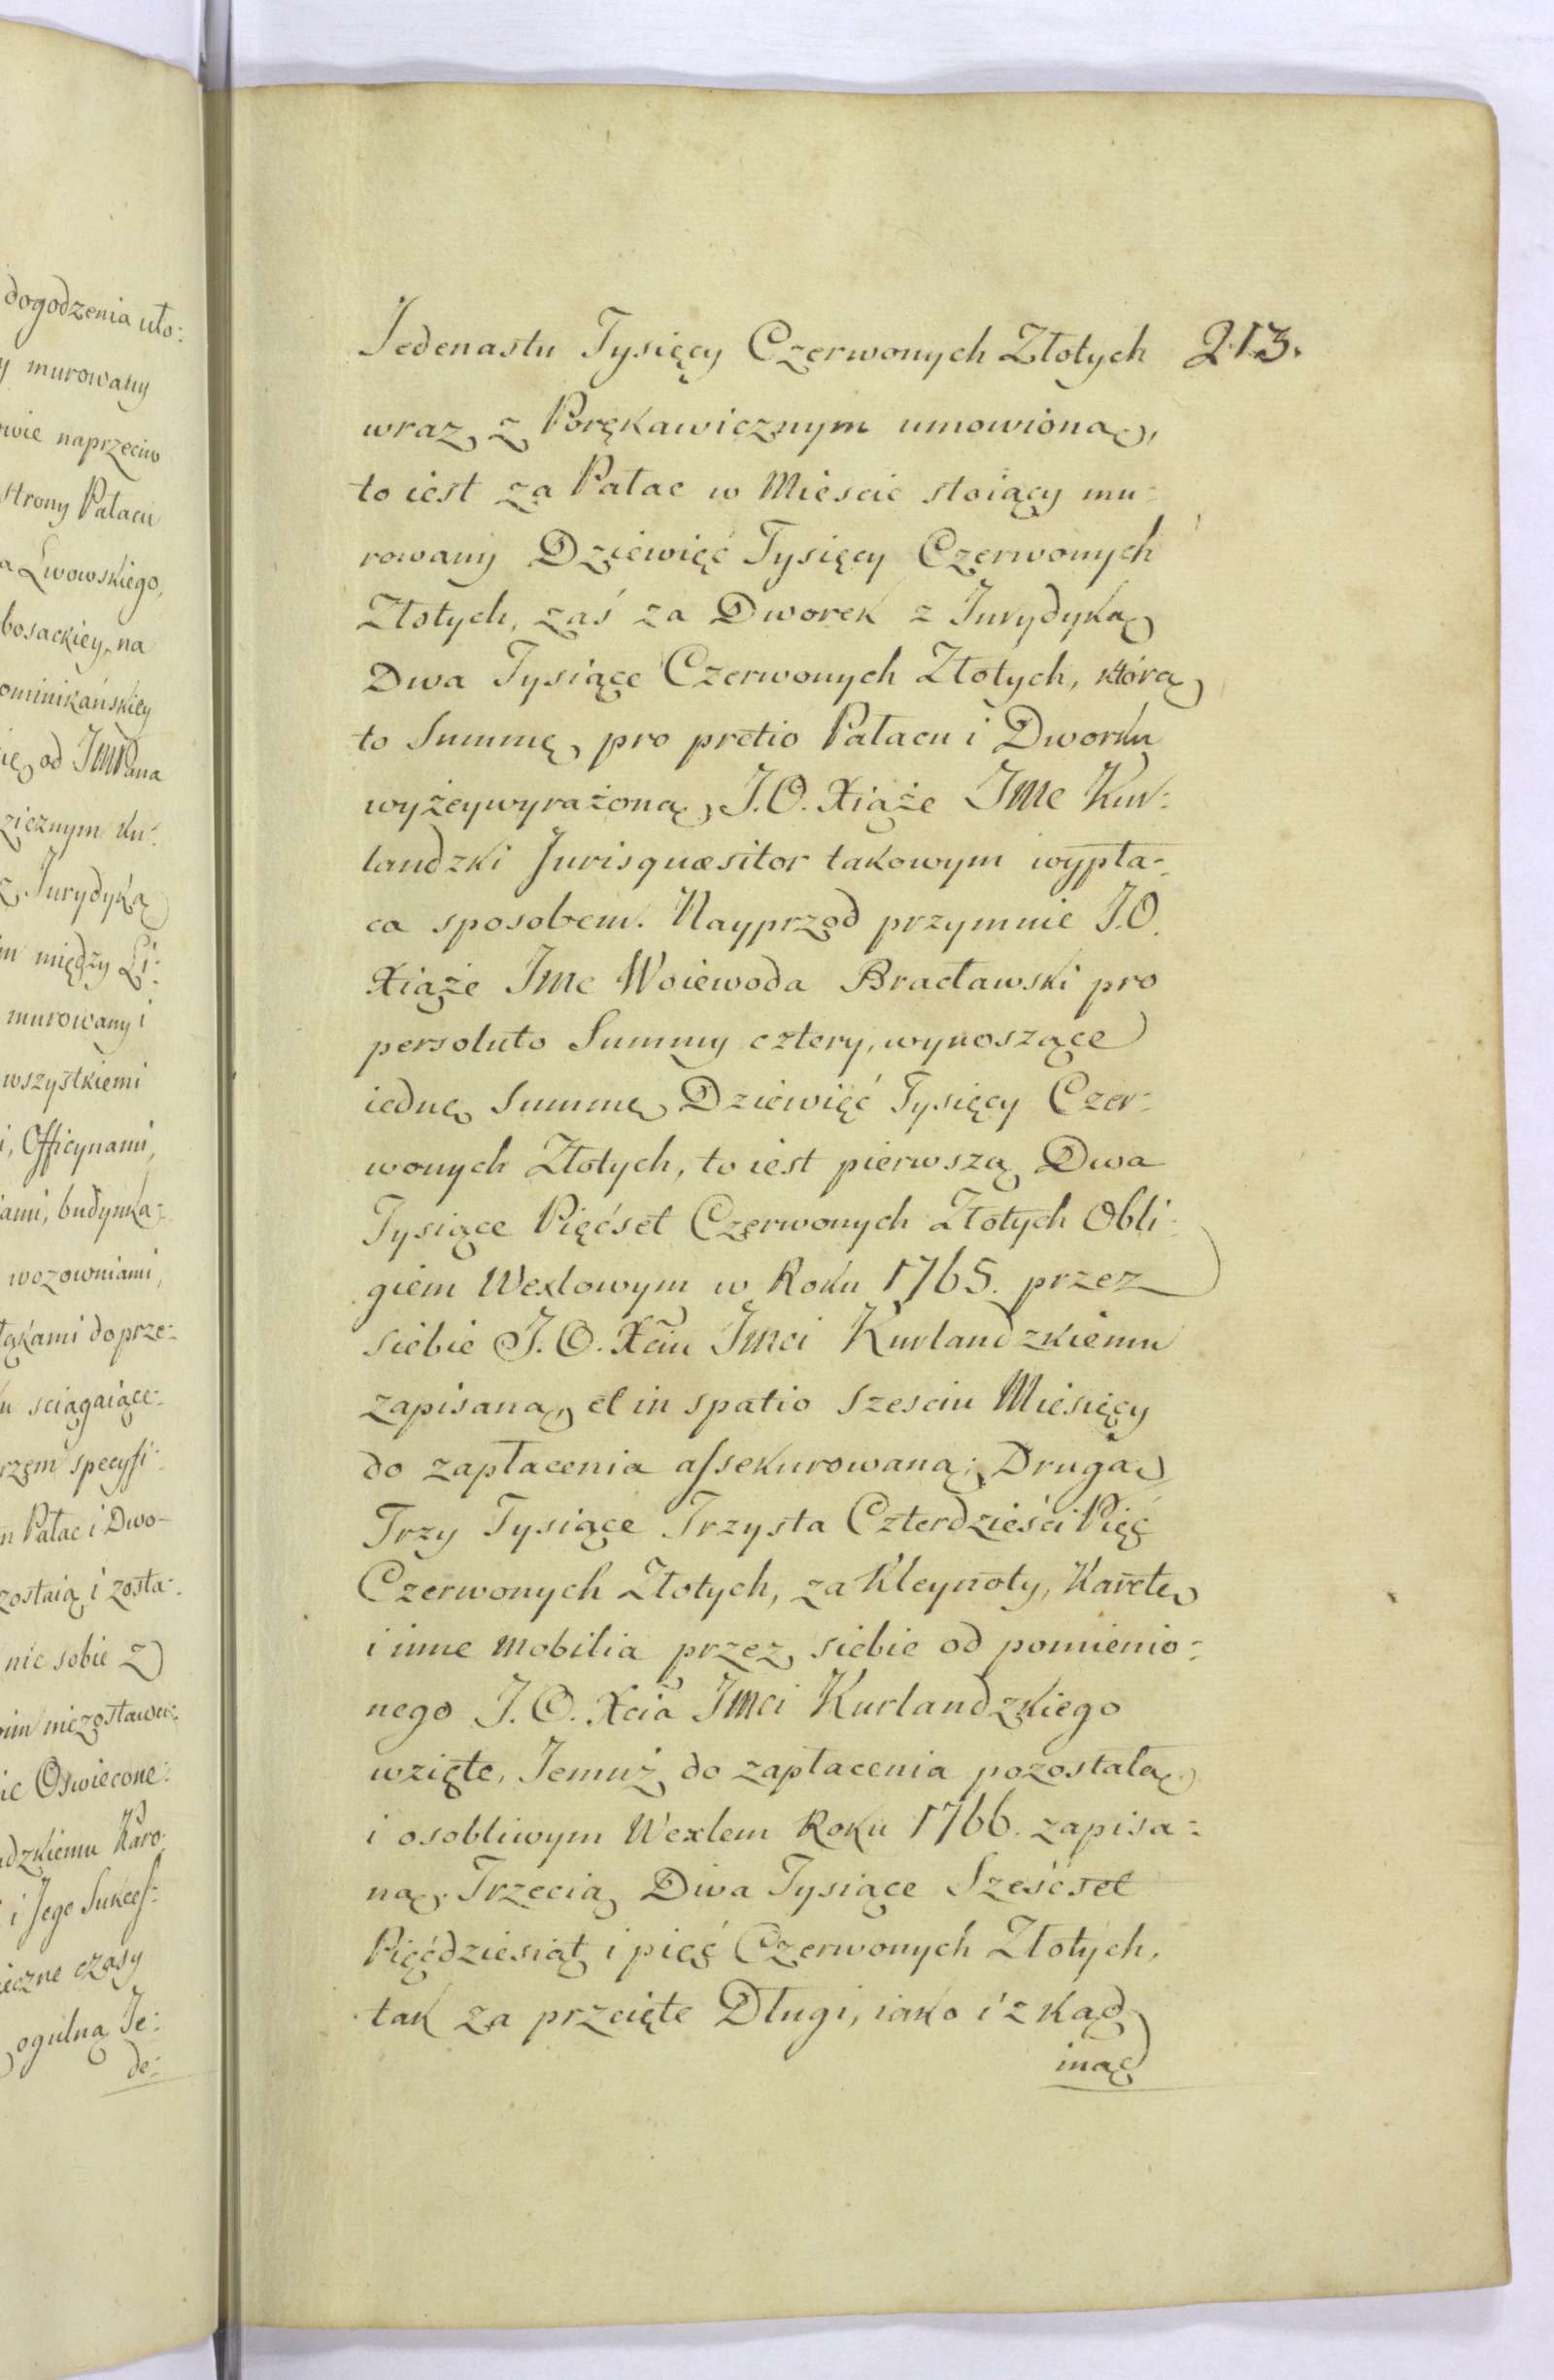 dogodzenia uło:
y murowany
owie naprzeciw
strony Pałacu
a Lwowskiego,
bosackiey, na
ominikańskiey
ię, od JmPana
zicznym ku:
z Jurydyką
m między Li:
murowany i
wszystkiemi
i, Officynami,
ami, budynka:
wozowniami,
łąkami do prze:
u sciągaiące:
rzęm specyfi:
n Pałac i Dwo-
zostaią i zosta:
nic sobie z
im niezostawu:
ie Oswiecone:
dzkiemu Karo:
i Jego Sukces:
ieczne czasy
ogulną Je:
de:
213.
Jedenastu Tysięcy Czerwonych Złotych
wraz z Porękawicznym umowioną,
to iest za Pałac w Miescie stoiący mu:
rowany Dziewięć Tysięcy Czerwonych
Złotych, zaś za Dworek z Jurydyką
Dwa Tysiące Czerwonych Złotych, którą
to Summę, pro pretio Pałacu i Dworku
wyżeywyrażoną, J.O. Xiąże JMc Kur:
landzki Jurisquæsitor takowym wypła:
ca sposobem. Nayprzod przymuie J.O.
Xiąże JMc Woiewoda Bracławski pro
persoluto Summy cztery, wynoszące
iednę Summę Dziewięć Tysięcy Czer:
wonych Złotych, to iest pierwszą Dwa
Tysiące Pięćset Czerwonych Złotych Obli:
giem Wexlowym w Roku 1765. przez
siebie J.O. Xciu Jmci Kurlandzkiemu
zapisaną, et in spatio szesciu Miesięcy
do zapłacenia assekurowaną; Drugą
Trzy Tysiące Trzysta Czterdzieści Pięć
Czerwonych Złotych, za Kleynoty, Karetę
i inne mobilia przez siebie od pomienio:
nego J.O. Xcia Jmci Kurlandzkiego
wzięte, Jemuż do zapłacenia pozostałą
i osobliwym Wexlem Roku 1766. zapisa:
ną. Trzecią Dwa Tysiące Sześćset
Pięćdziesiąt i pięć Czerwonych Złotych,
tak za przeięte Długi, iako i z kąd
inąd